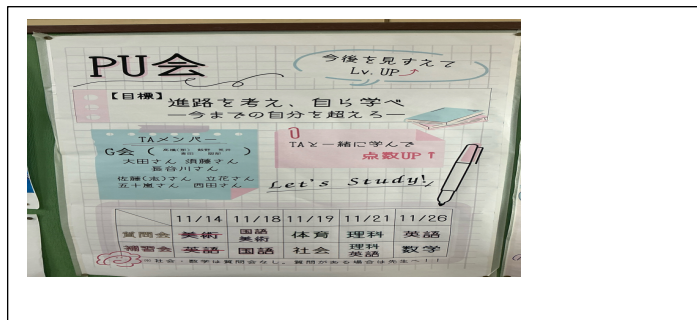 PU会
今後を見すえて
Lv. UP
【目標】
進路を考え、自ら学べ
―今までの自分を超えろ―
TAメンバー
G会(
)
大田さん 須藤さん
長谷川さん
佐藤(志)さん 立花さん
五十嵐さん 西田さん
TAと一緒に学んで
点数UP↑
Let's Study!
11/14 11/18 11/19 11/21 11/26
質問会 美術 国語 美術 体育 理科 英語
補習会 英語 国語 社会 理科 英語 数学
※社会・数学は質問会なし。質問がある場合は先生へ!!